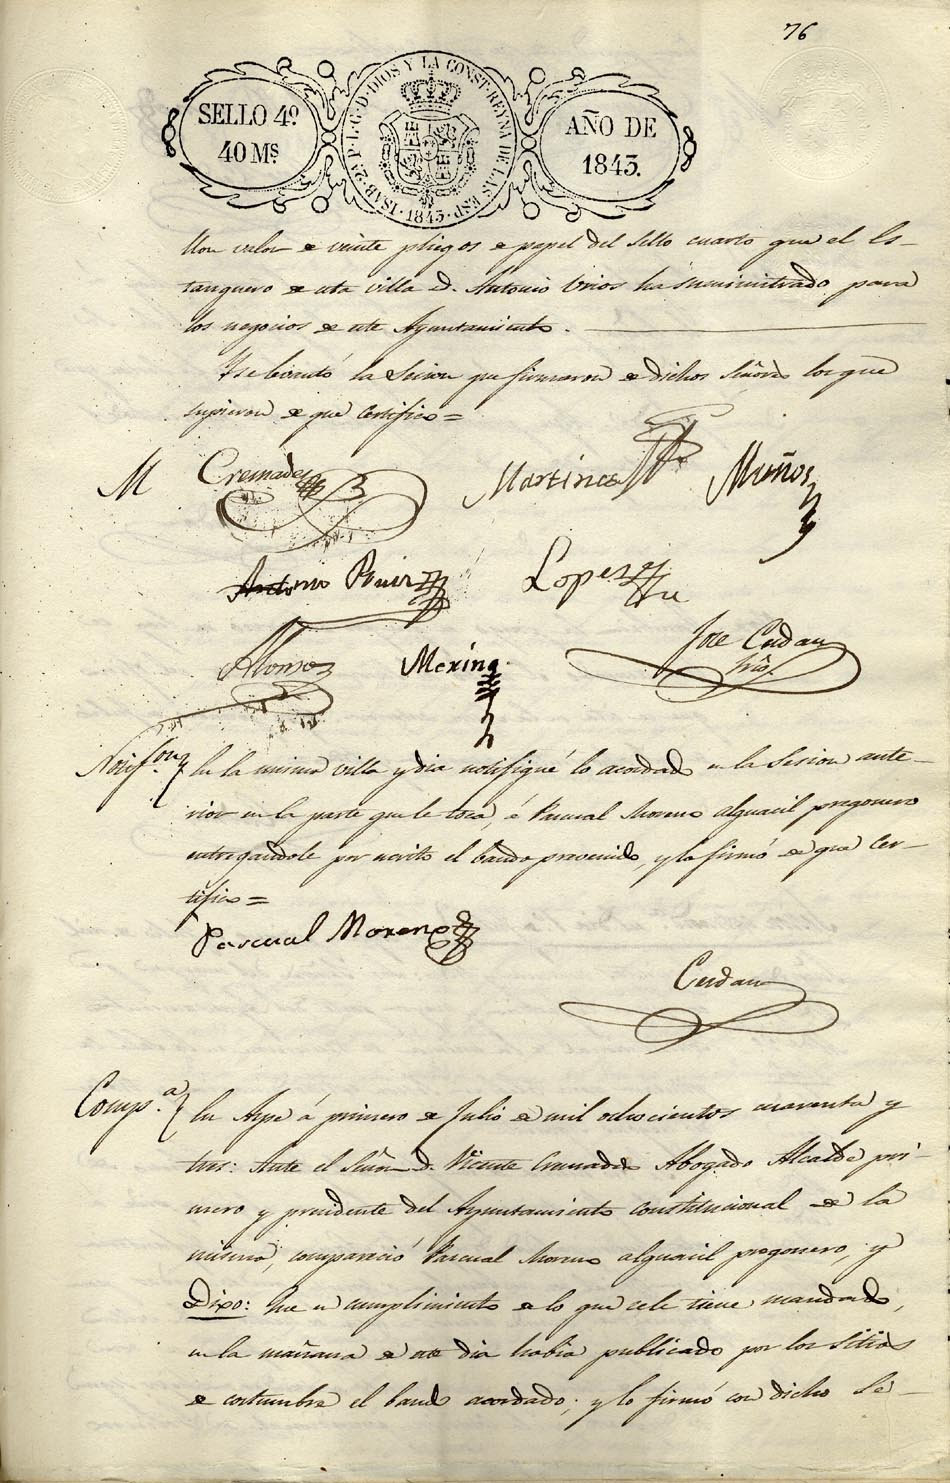 76
SELLO 4º
40 Mˢ
ISAB. 2ª P. L. G. D. DIOS Y LA CONST. REYNA DE LAS ESP. 1843
AÑO DE
1843.
valor de veinte pliegos de papel del Sello cuarto que el Es-
tanquero de esta villa d. Antonio Urios ha suministrado para
los negocios de este Ayuntamiento.
Y se levantó la Sesion que firmaron de dichos Señores los que
supieron de que certifico=
M Cremades Martinez Muños
Antonio Ruiz Lopez
Alonso Merina Jose Cerdan
Srio.
Notifⁿ En la misma villa y dia notifiqué lo acordado en la Sesion ante-
rior en la parte que le toca, á Pascual Moreno alguacil pregonero
entregandole por escrito el bando prevenido, y lo firmó de que cer-
tifico=
Pascual Moreno
Cerdan
Comp.ª En Aspe á primero de Julio de mil ochocientos cuarenta y
tres: Ante el Señor d. Vicente Cremades Abogado Alcalde pri-
mero y presidente del Ayuntamiento constitucional de la
misma, compareció Pascual Moreno alguacil pregonero, y
Dixo: Que en cumplimiento de lo que se le tiene mandado,
en la mañana de este dia habia publicado por los Sitios
de costumbre el bando acordado; y lo firmó con dicho Se-